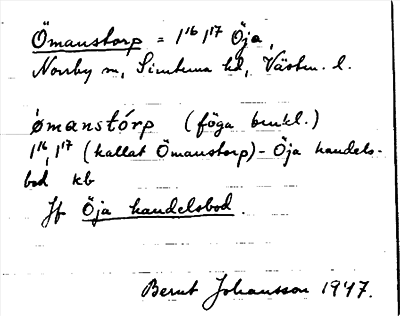 Ömanstorp = 1¹⁶ 1¹⁷ Öja,
Norrby sn, Simtuna hd, Västm. l.
ömanstórp (föga brukl.)
1¹⁶, 1¹⁷ (kallat Ömanstorp) - Öja handels-
bod kb
Jf Öja handelsbod.
Bernt Johansson 1947.